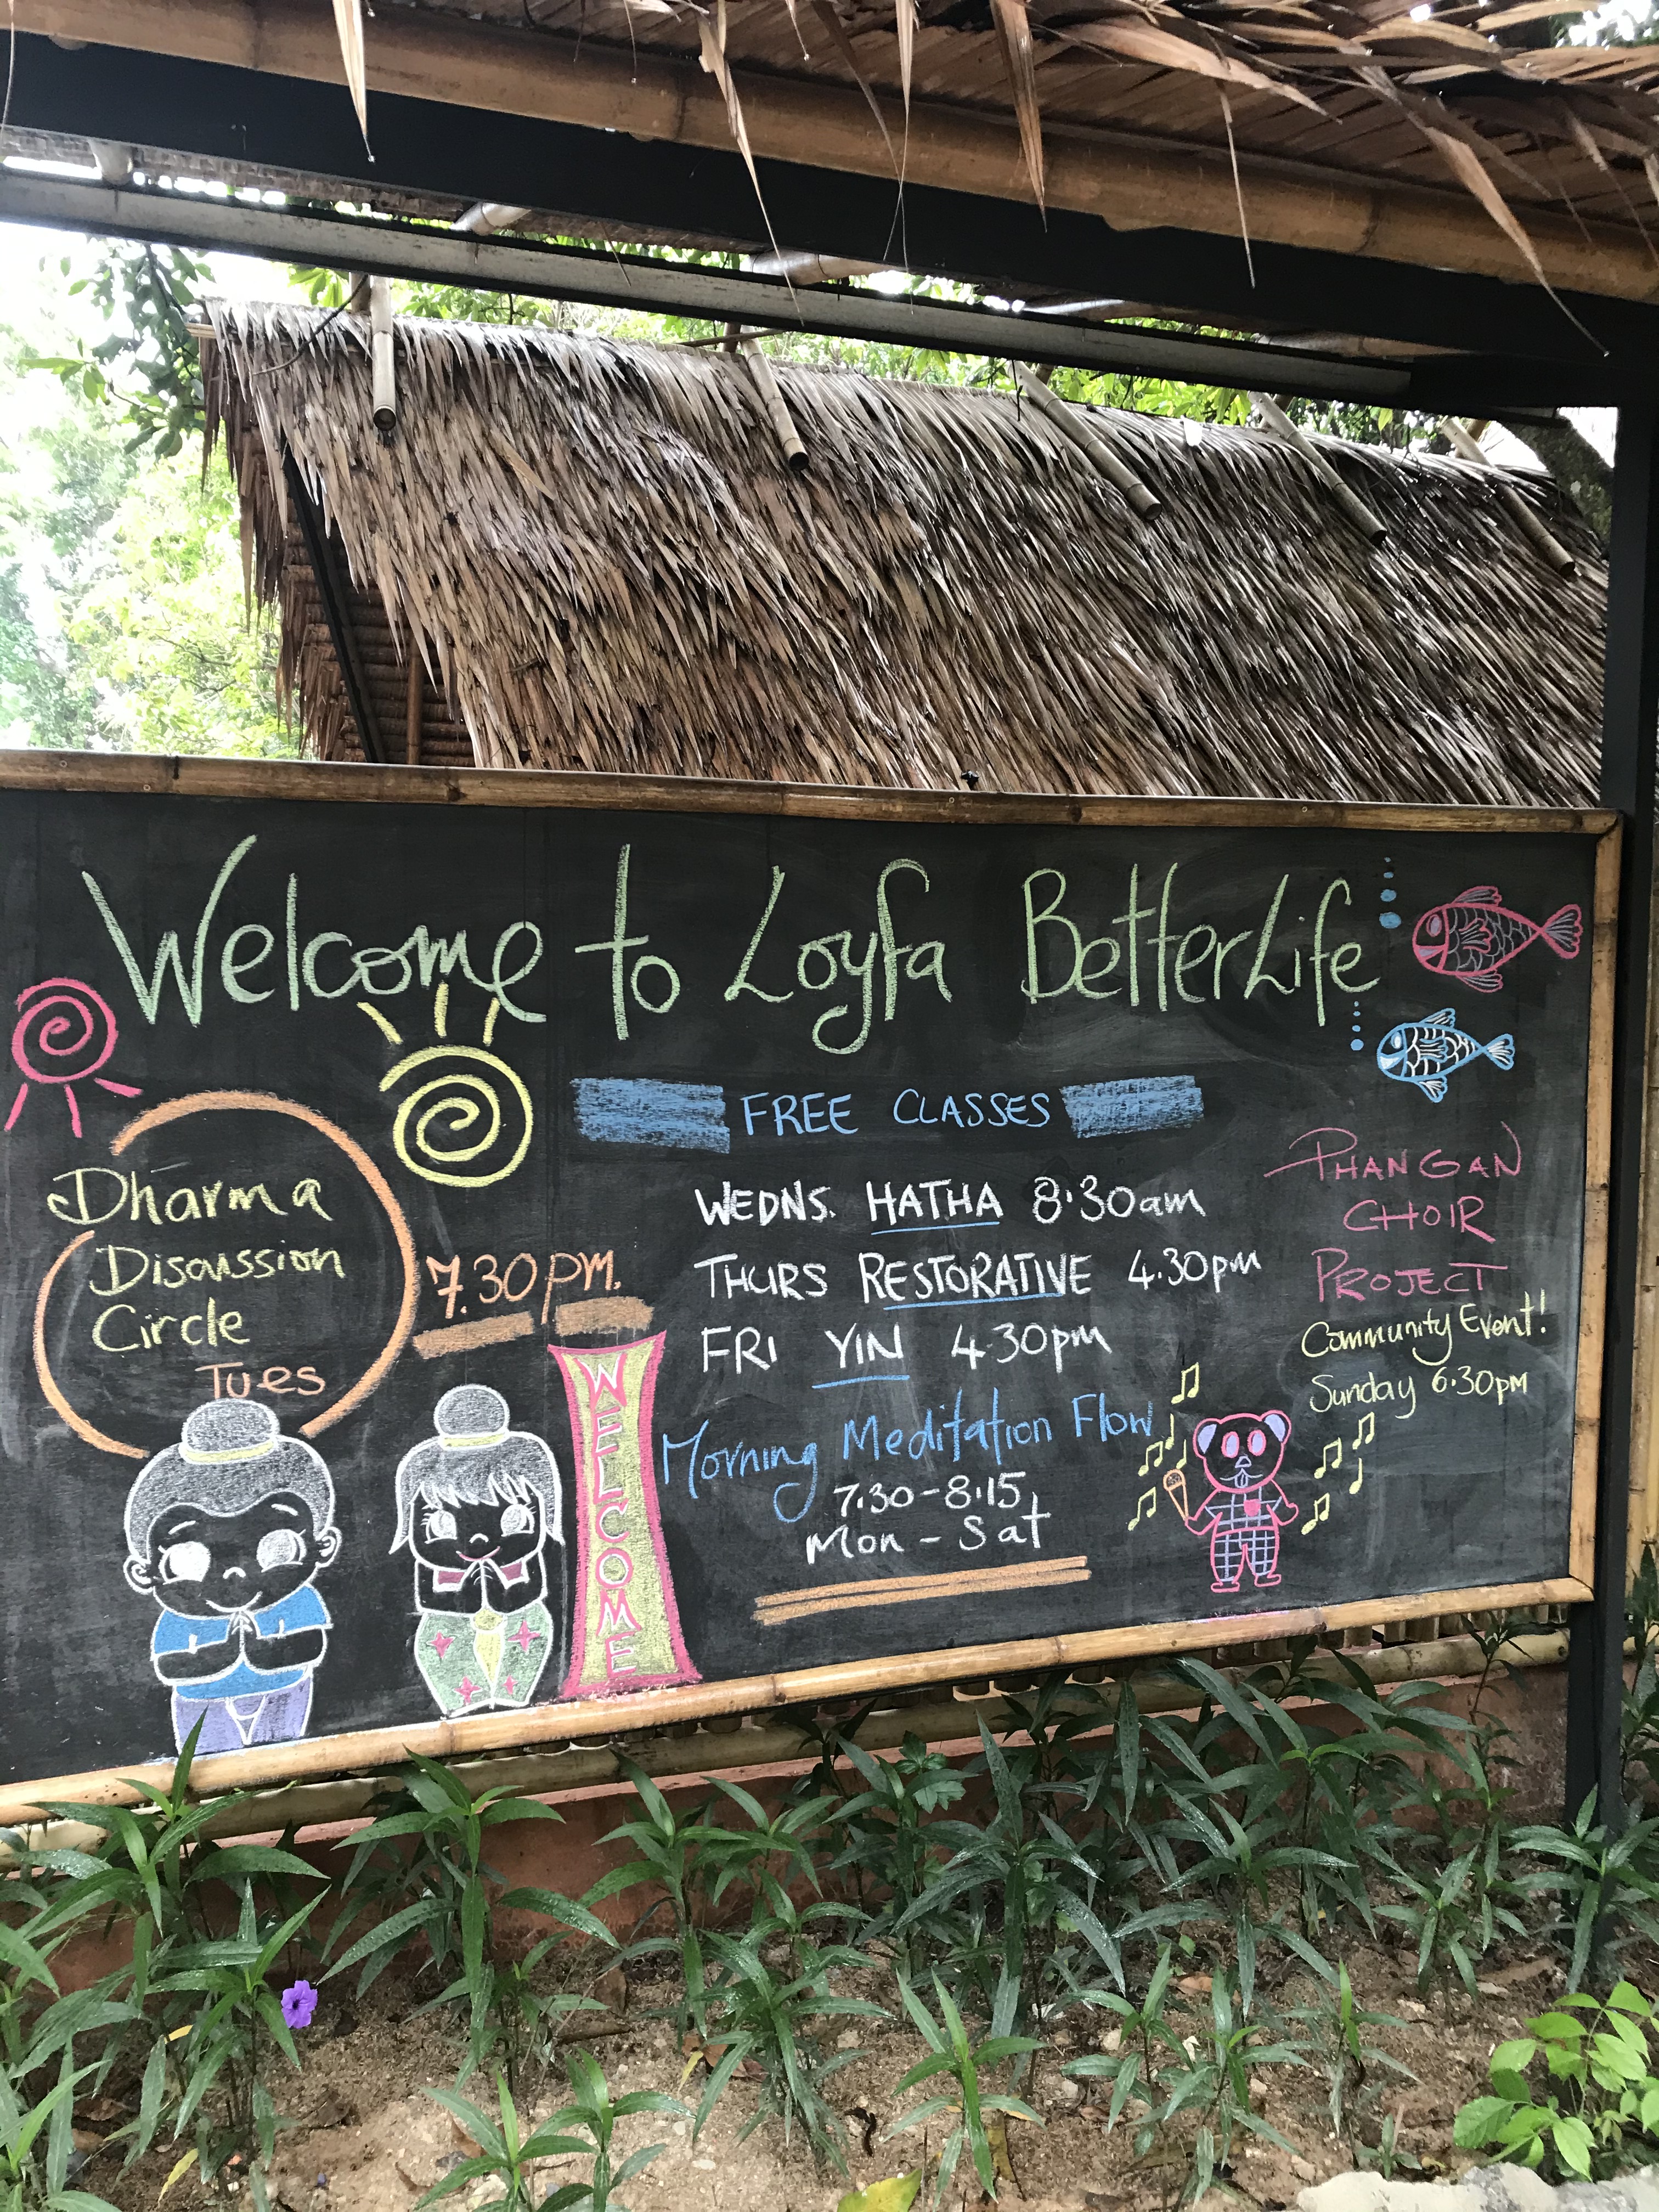 Welcome to Loyfa BetterLife
Dharma
Discussion
Circle
Tues
7.30 pm.
WELCOME
FREE CLASSES
WEDNS. HATHA 8.30am
THURS RESTORATIVE 4.30pm
FRI YIN 4.30pm
Morning Meditation Flow
7.30-8.15
Mon - Sat
PHANGAN
CHOIR
PROJECT
Community Event!
Sunday 6.30pm